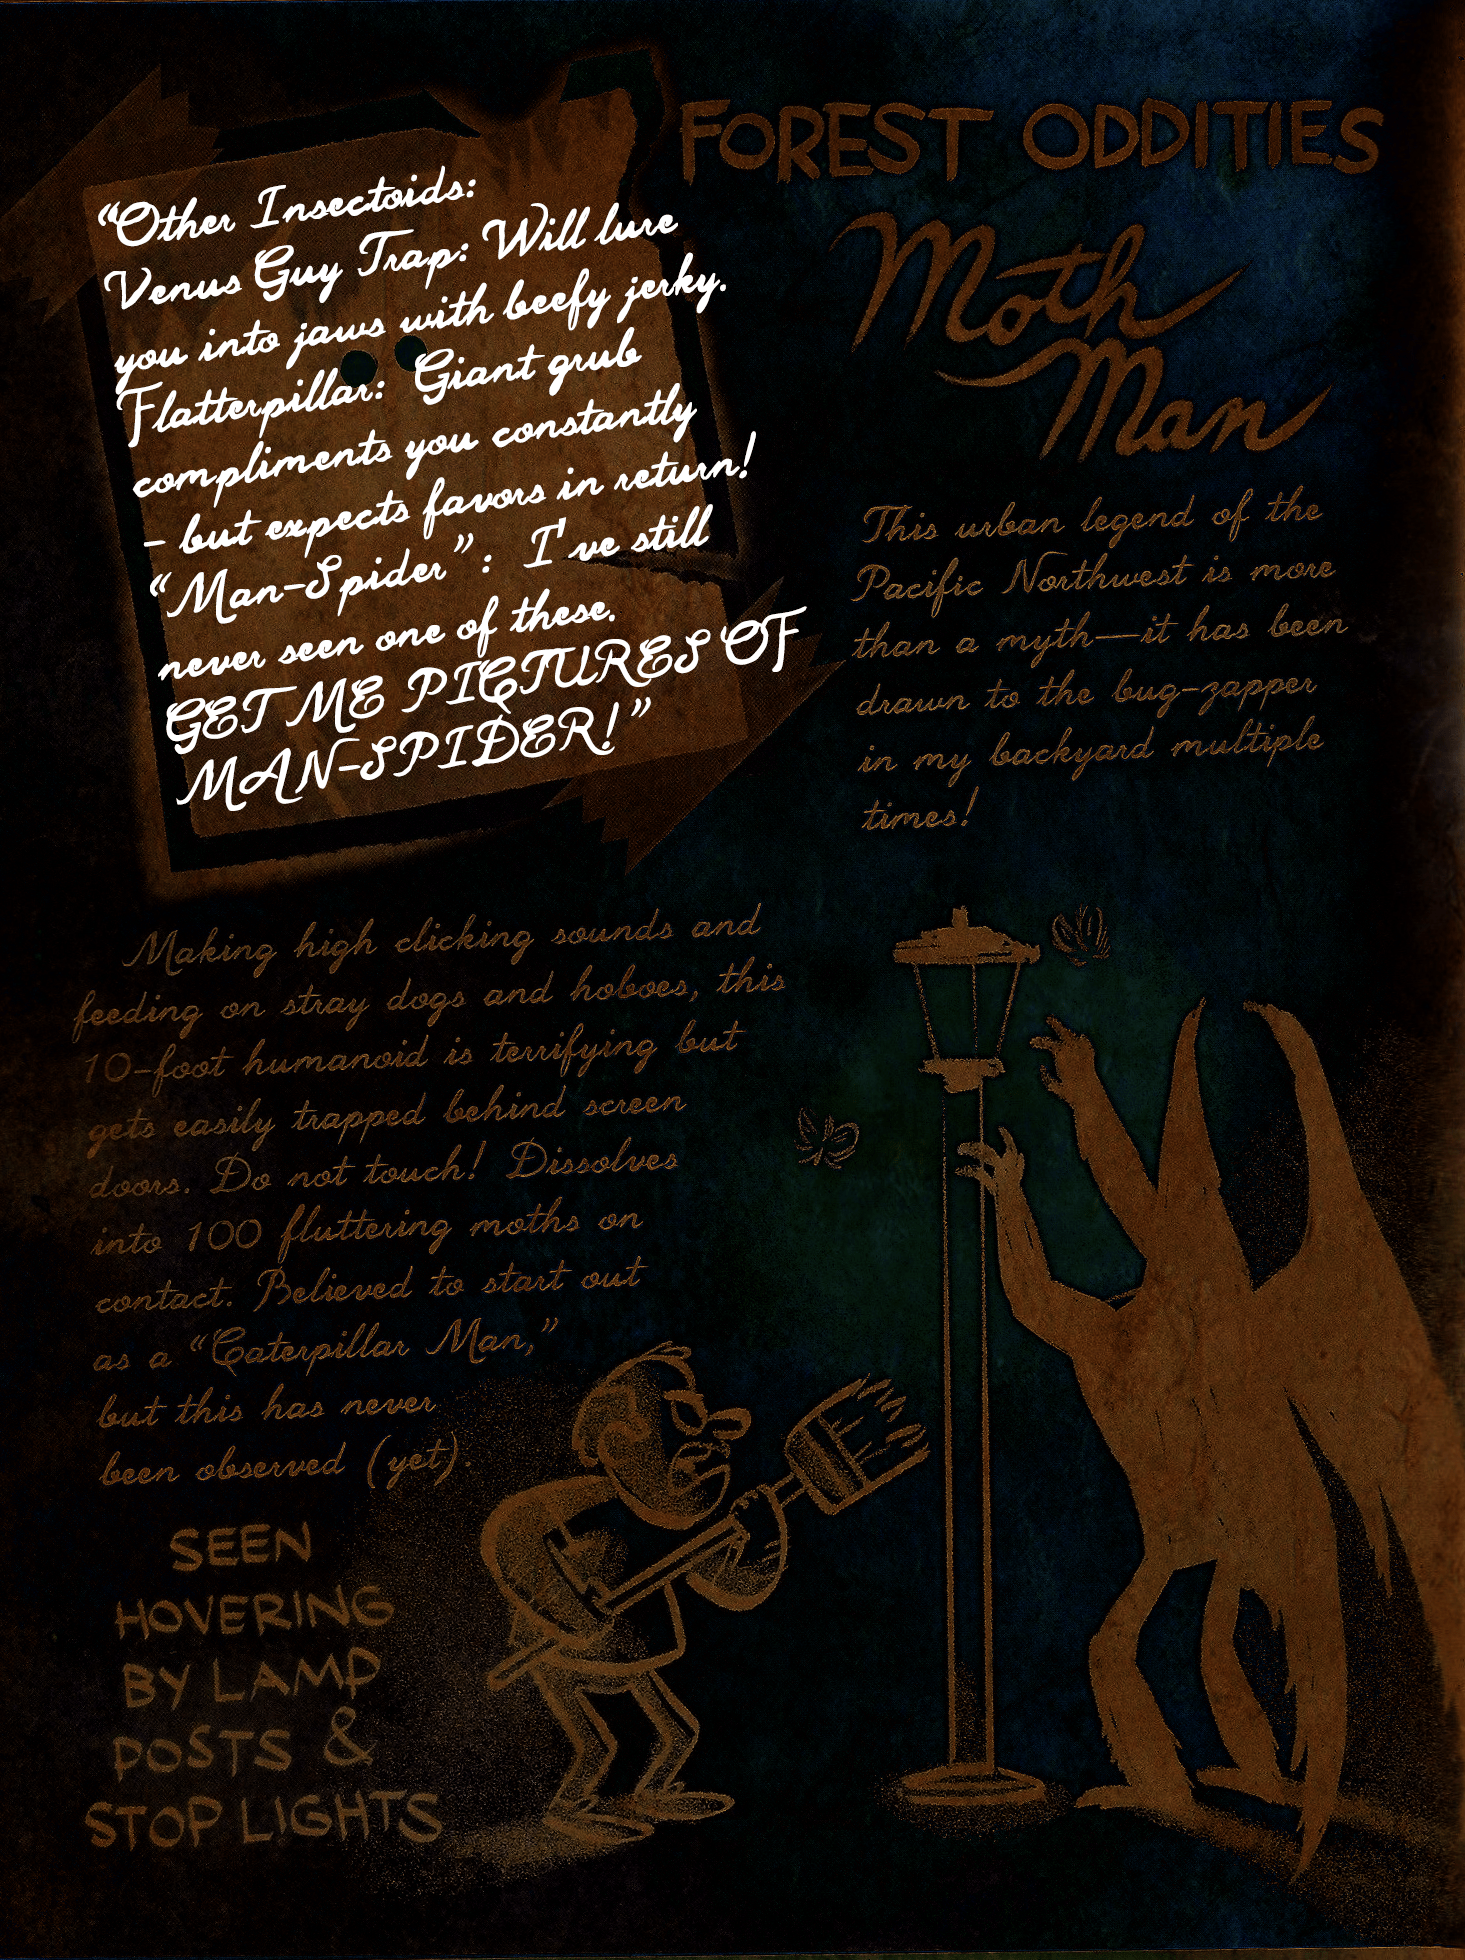 FOREST ODDITIES
Moth
Man
“Other Insectoids:
Venus Guy Trap: Will lure
you into jaws with beefy jerky.
Flatterpillar: Giant grub
compliments you constantly
– but expects favors in return!
“Man-Spider”: I've still
never seen one of these.
GET ME PICTURES OF
MAN-SPIDER!”
This urban legend of the
Pacific Northwest is more
than a myth—it has been
drawn to the bug-zapper
in my backyard multiple
times!
Making high clicking sounds and
feeding on stray dogs and hoboes, this
10-foot humanoid is terrifying but
gets easily trapped behind screen
doors. Do not touch! Dissolves
into 100 fluttering moths on
contact. Believed to start out
as a “Caterpillar Man,”
but this has never
been observed (yet).
SEEN
HOVERING
BY LAMP
POSTS &
STOP LIGHTS